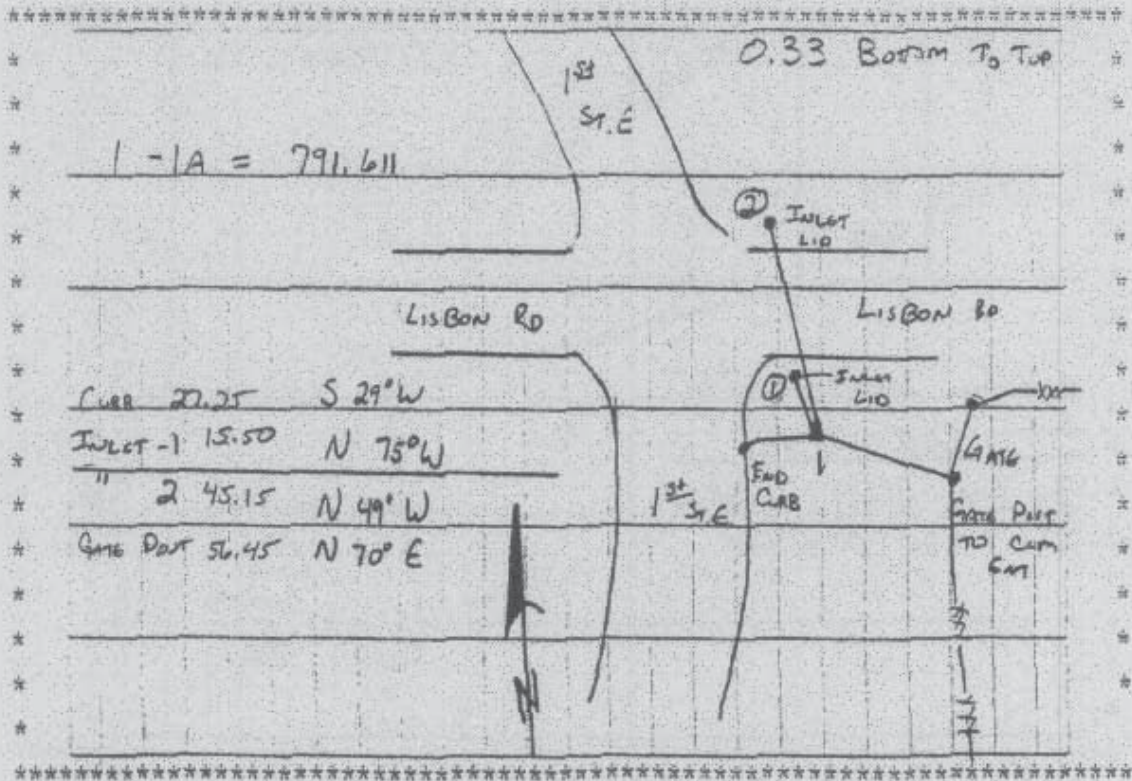 0.33 BOTTOM TO TOP
1st
ST. E
1 - 1A = 791.611
2 INLET
LID
LISBON RD
LISBON RD
1 INLET
LID
CURB 27.25 S 29° W
INLET - 1 15.50 N 75° W
" 2 45.15 N 49° W
GATE POST 56.45 N 70° E
1
END
CURB
GATE
1st
ST. E
GATE POST
TO CEM
N